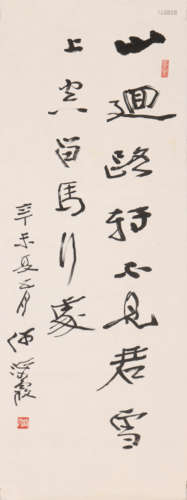 山迴路轉不見君雪
上空留馬行處
辛未夏六月 何海霞